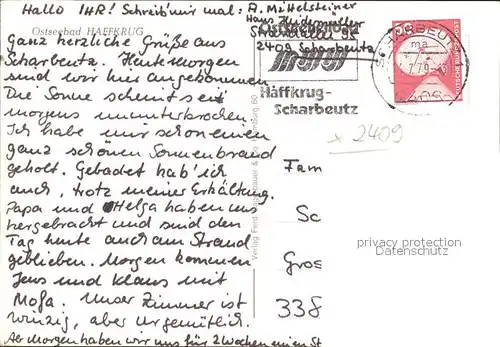 Hallo IHR! Schreib' mir mal: A. Mittelsteiner
Ostseebad HAFFKRUG
Haus
Strandallee
2409 Scharbeutz
Haffkrug-
Scharbeutz
SCHARBEUTZ
DEUTSCHE BUNDESPOST
Ganz herzliche Grüße aus
Scharbeutz. Heute Morgen
sind wir hier angekommen
Die Sonne scheint seit
morgens ununterbrochen.
Ich habe mir schon einen
ganz schönen Sonnenbrand
geholt. Gebadet hab' ich
auch, trotz meiner Erkältung.
Papa und Helga haben uns
hergebracht und sind den
Tag heute auch am Strand
geblieben. Morgen kommen
Jens und Klaus mit
Mofa. Unser Zimmer ist
winzig, aber urgemütlich.
Ab Morgen haben wir uns für 2 Wochen einen St
x 2409
Fam
Sc
Gros
338
Verlag Ferd. Lagerbauer & Co Hamburg 60
privacy protection
Datenschutz